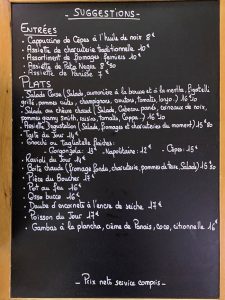 - SUGGESTIONS -
ENTRÉES
- Cappuccino de Cèpes à l'huile de noix 8€
- Assiette de charcuterie traditionnelle 10€
- Assortiment de fromages fermiers 10€
- Assiette de Pata Negra 8€50
- Assiette de Panisse 7€
PLATS
- Salade Corse (Salade, à la bousse et à la menthe, Figatelli
grillé, pommes cuites, champignons, croûtons, tomates, longo) 16€50
- Salade au chèvre chaud (Salade, Chèvre, panés, cerneaux de noix,
pommes granny smith, raisins, tomates, Coppa..) 16€50
- Assiette Dégustation (Salade, fromages et charcuteries du moment) 15€50
- Tarte du Jour 14€
- Gnocchi ou Tagliatelle fraîches:
- Gorgonzola: 13€ - Napolitaine: 11€ - Cèpes: 15€
- Ravioli du Jour 14€
- Boîte chaude (fromage fondu, charcuterie, pommes de terre, Salade) 16€50
- Pièce du Boucher 17€
- Pot au feu 16€
- Osso bucco 16€
- Daube d'encornets à l'encre de seiche 17€
- Poisson du Jour 17€
- Gambas à la plancha, crème de Panais, coco, citronnelle 16€
- Prix nets service compris -